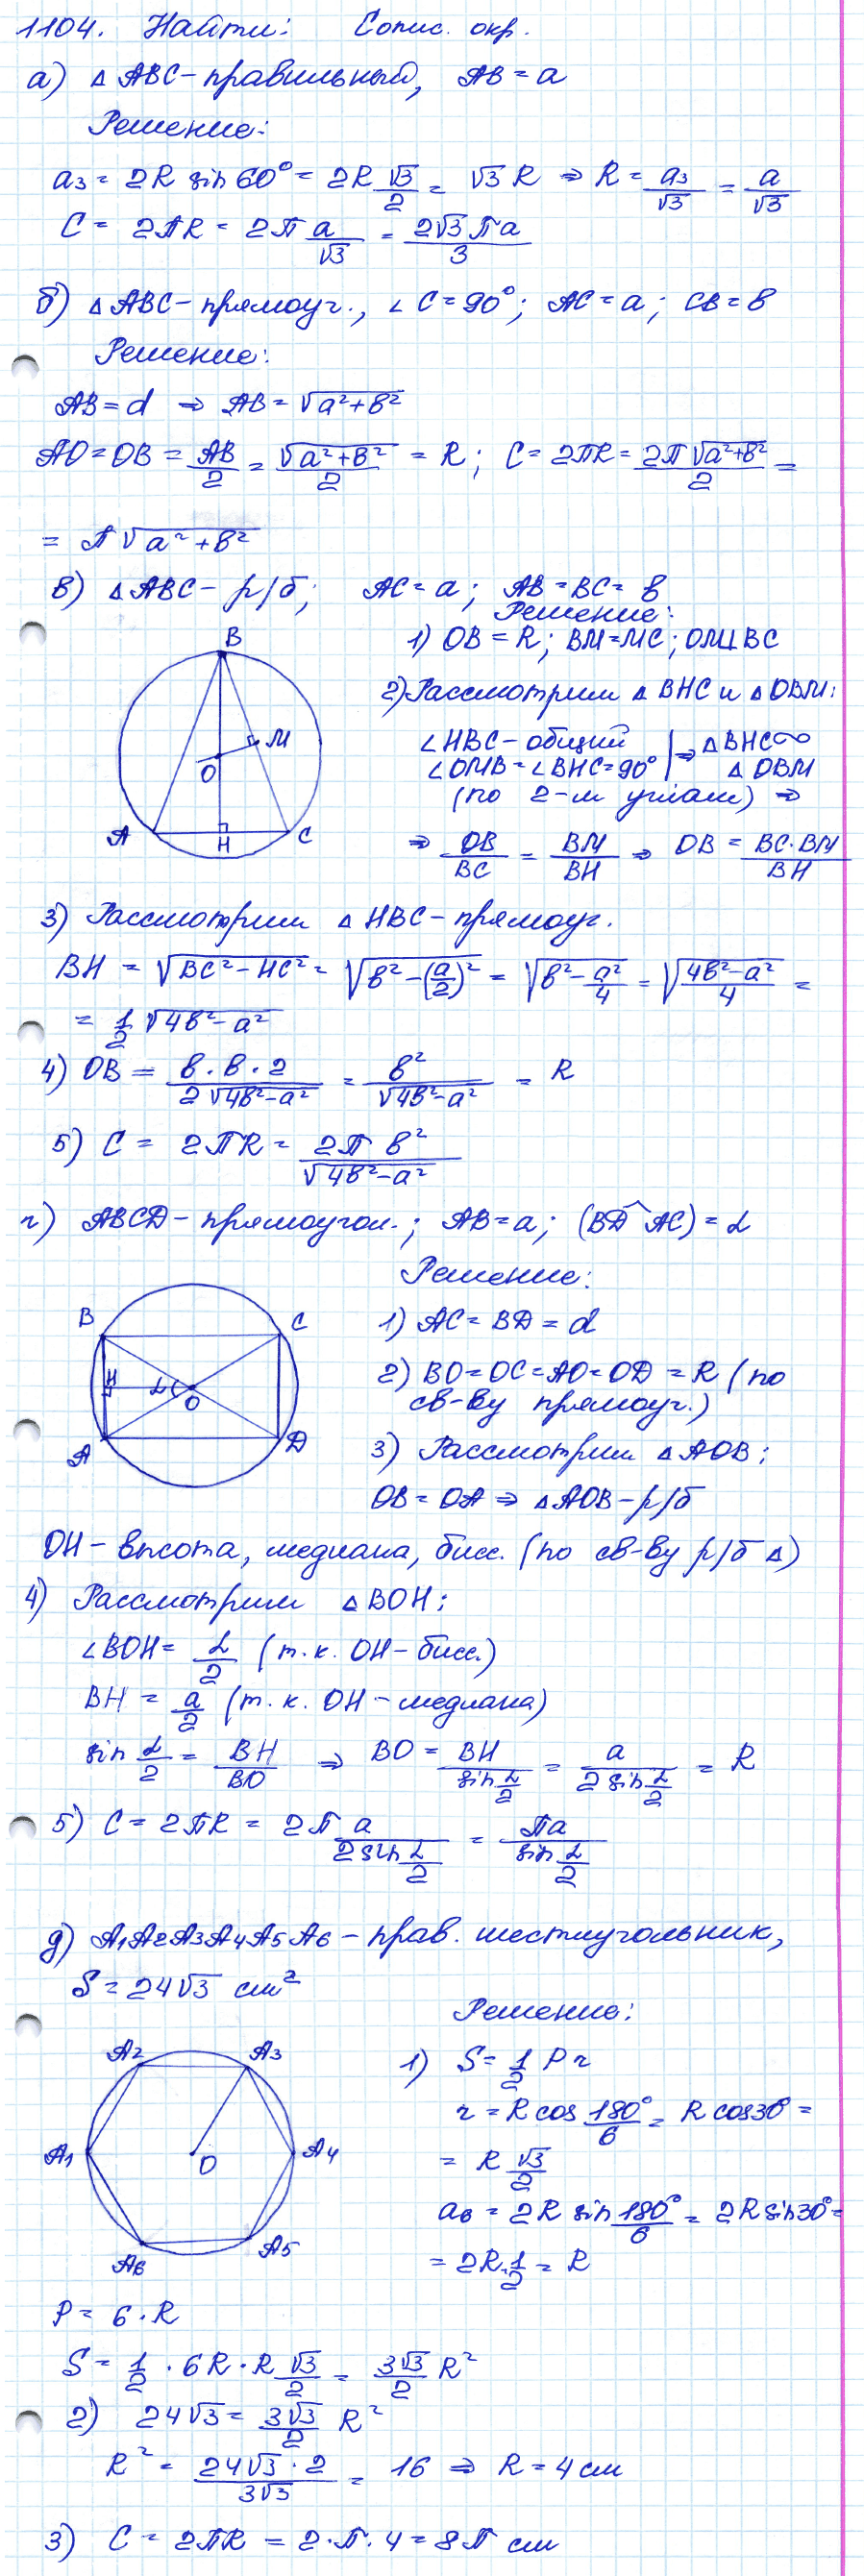 1104. Найти: Cопис. окр.
а) △ ABC - правильный, AB = a
Решение:
a₃ = 2R sin 60° = 2R √3/2 = √3 R ⇒ R = a₃/√3 = a/√3
C = 2πR = 2π a/√3 = 2√3πa/3
б) △ ABC - прямоуг., ∠ C = 90°; AC = a; CB = в
Решение:
AB = d ⇒ AB = √(a² + в²)
AO = OB = AB/2 = √(a² + в²)/2 = R; C = 2πR = 2π√(a² + в²)/2 =
= π √(a² + в²)
в) △ ABC - р/б; AC = a; AB = BC = в
Решение:
1) OB = R; BM = MC; OM⊥BC
2) Рассмотрим △ BHC и △ OBM:
∠HBC - общий
∠OMB = ∠BHC = 90° | ⇒ △BHC ∾ △ OBM
(по 2-м углам) ⇒
⇒ OB/BC = BM/BH ⇒ OB = BC·BM/BH
B
M
O
A
H
C
3) Рассмотрим △ HBC - прямоуг.
BH = √(BC² - HC²) = √(в² - (a/2)²) = √(в² - a²/4) = √((4в² - a²)/4) =
= 1/2 √(4в² - a²)
4) OB = в · в · 2/(2√(4в² - a²)) = в²/√(4в² - a²) = R
5) C = 2πR = 2π в²/√(4в² - a²)
г) ABCD - прямоугол.; AB = a; (BD^AC) = α
Решение:
1) AC = BD = d
2) BO = OC = AO = OD = R (по
св-ву прямоуг.)
3) Рассмотрим △ AOB;
OB = OA ⇒ △ AOB - р/б
B
C
H
α
O
A
D
OH - высота, медиана, бисс. (по св-ву р/б △)
4) Рассмотрим △ BOH:
∠BOH = α/2 (т.к. OH - бисс.)
BH = a/2 (т.к. OH - медиана)
sin α/2 = BH/BO ⇒ BO = BH/sin α/2 = a/(2 sin α/2) = R
5) C = 2πR = 2π a/(2 sin α/2) = πa/(sin α/2)
д) A₁A₂A₃A₄A₅A₆ - прав. шестиугольник,
S = 24√3 см²
Решение:
1) S = 1/2 P r
r = R cos 180°/6 = R cos 30° =
= R √3/2
a₆ = 2R sin 180°/6 = 2R sin 30° =
= 2R · 1/2 = R
A₂
A₃
A₁
O
A₄
A₆
A₅
P = 6 · R
S = 1/2 · 6R · R √3/2 = 3√3/2 R²
2) 24√3 = 3√3/2 R²
R² = 24√3 · 2/3√3 = 16 ⇒ R = 4 см
3) C = 2πR = 2 · π · 4 = 8π см